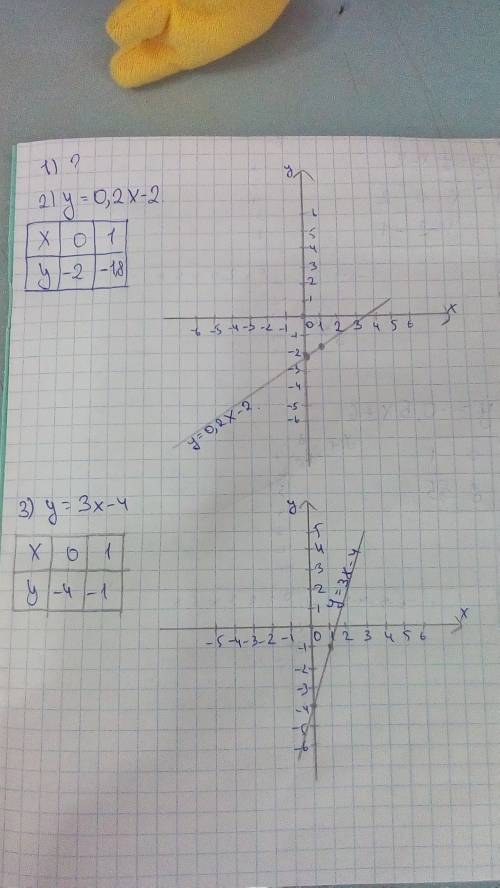 1) ?
2) y = 0,2x-2
x 0 1
y -2 -18
y
6
5
4
3
2
1
-6 -5 -4 -3 -2 -1 0 1 2 3 4 5 6 x
-1
-2
-3
-4
-5
-6
y=0,2x-2
3) y = 3x-4
x 0 1
y -4 -1
y
5
4
3
2
1
y=3x-4
-5 -4 -3 -2 -1 0 1 2 3 4 5 6 x
-1
-2
-3
-4
-5
-6